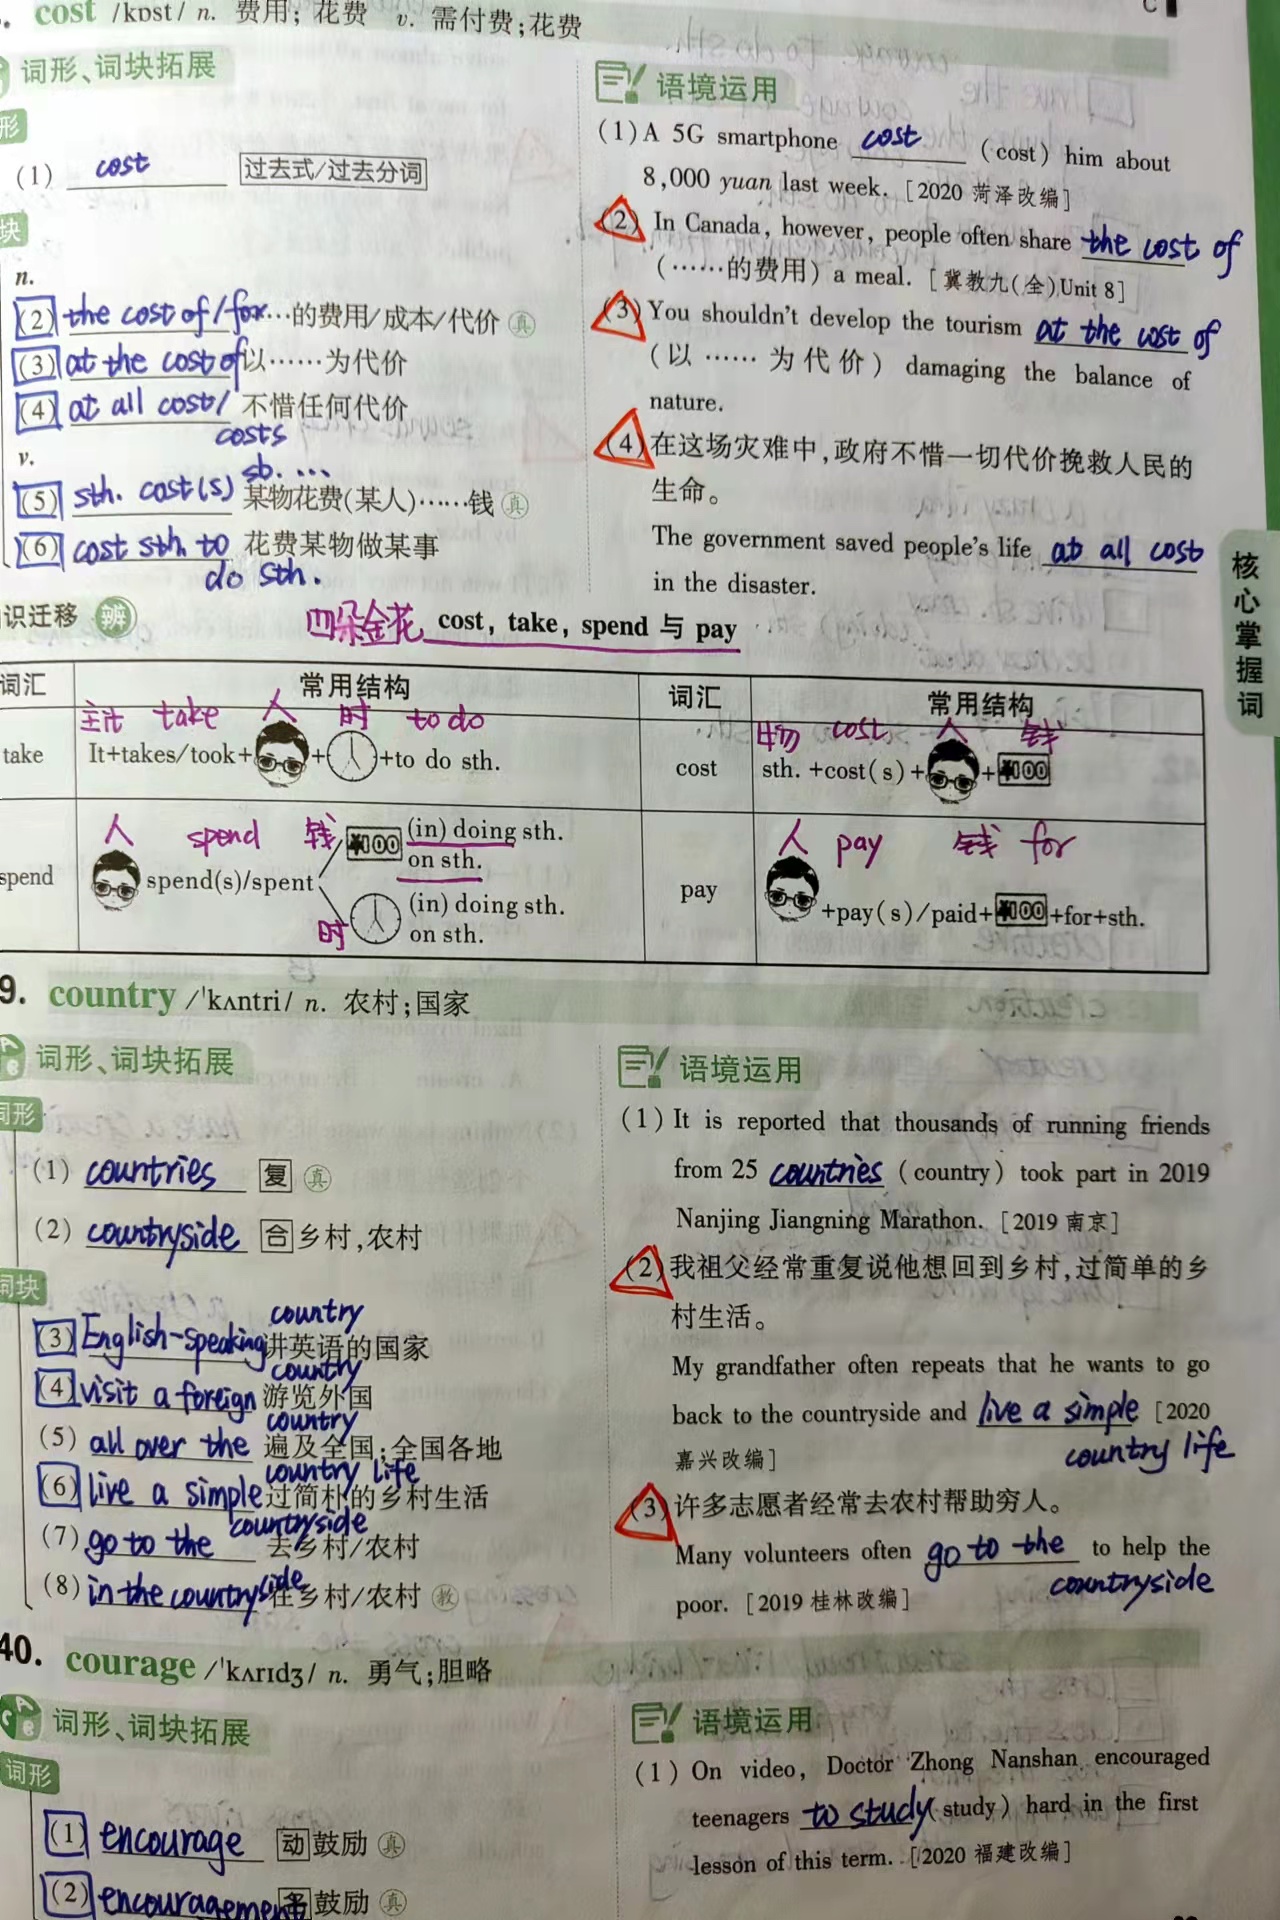 cost /kɒst/ n. 费用；花费 v. 需付费；花费
词形、词块拓展
形
(1) cost 过去式/过去分词
块
n.
(2) the cost of/for……的费用/成本/代价 真
(3) at the cost of 以……为代价
(4) at all cost/ 不惜任何代价
costs
v.
sb. ...
(5) sth. cost(s) 某物花费(某人)……钱 真
(6) cost sth. to 花费某物做某事
do sth.
语境运用
(1) A 5G smartphone cost (cost) him about
8,000 yuan last week. [2020 菏泽改编]
(2) In Canada, however, people often share the cost of
(……的费用) a meal. [冀教九(全)Unit 8]
(3) You shouldn't develop the tourism at the cost of
(以……为代价) damaging the balance of
nature.
(4) 在这场灾难中，政府不惜一切代价挽救人民的
生命。
The government saved people's life at all cost
in the disaster.
核心掌握词
识迁移 辨 四朵金花 cost, take, spend 与 pay
词汇 常用结构 词汇 常用结构
主it take 人 时 to do
take It+takes/took+ + +to do sth.
物 cost 人 钱
cost sth. +cost(s)+ +¥100
人 spend 钱 ¥100 (in) doing sth.
on sth.
spend spend(s)/spent
时 (in) doing sth.
on sth.
人 pay 钱 for
pay +pay(s)/paid+¥100+for+sth.
9. country /ˈkʌntri/ n. 农村；国家
词形、词块拓展
词形
(1) countries 复 真
(2) countryside 合 乡村，农村
词块
country
(3) English-speaking 讲英语的国家
country
(4) visit a foreign 游览外国
country
(5) all over the 遍及全国；全国各地
country life
(6) live a simple 过简朴的乡村生活
countryside
(7) go to the 去乡村/农村
(8) in the countryside 在乡村/农村 教
语境运用
(1) It is reported that thousands of running friends
from 25 countries (country) took part in 2019
Nanjing Jiangning Marathon. [2019 南京]
(2) 我祖父经常重复说他想回到乡村，过简单的乡
村生活。
My grandfather often repeats that he wants to go
back to the countryside and live a simple [2020
country life
嘉兴改编]
(3) 许多志愿者经常去农村帮助穷人。
Many volunteers often go to the to help the
countryside
poor. [2019 桂林改编]
40. courage /ˈkʌrɪdʒ/ n. 勇气；胆略
词形、词块拓展
词形
(1) encourage 动 鼓励 真
(2) encouragement 名 鼓励 真
语境运用
(1) On video, Doctor Zhong Nanshan encouraged
teenagers to study (study) hard in the first
lesson of this term. [2020 福建改编]